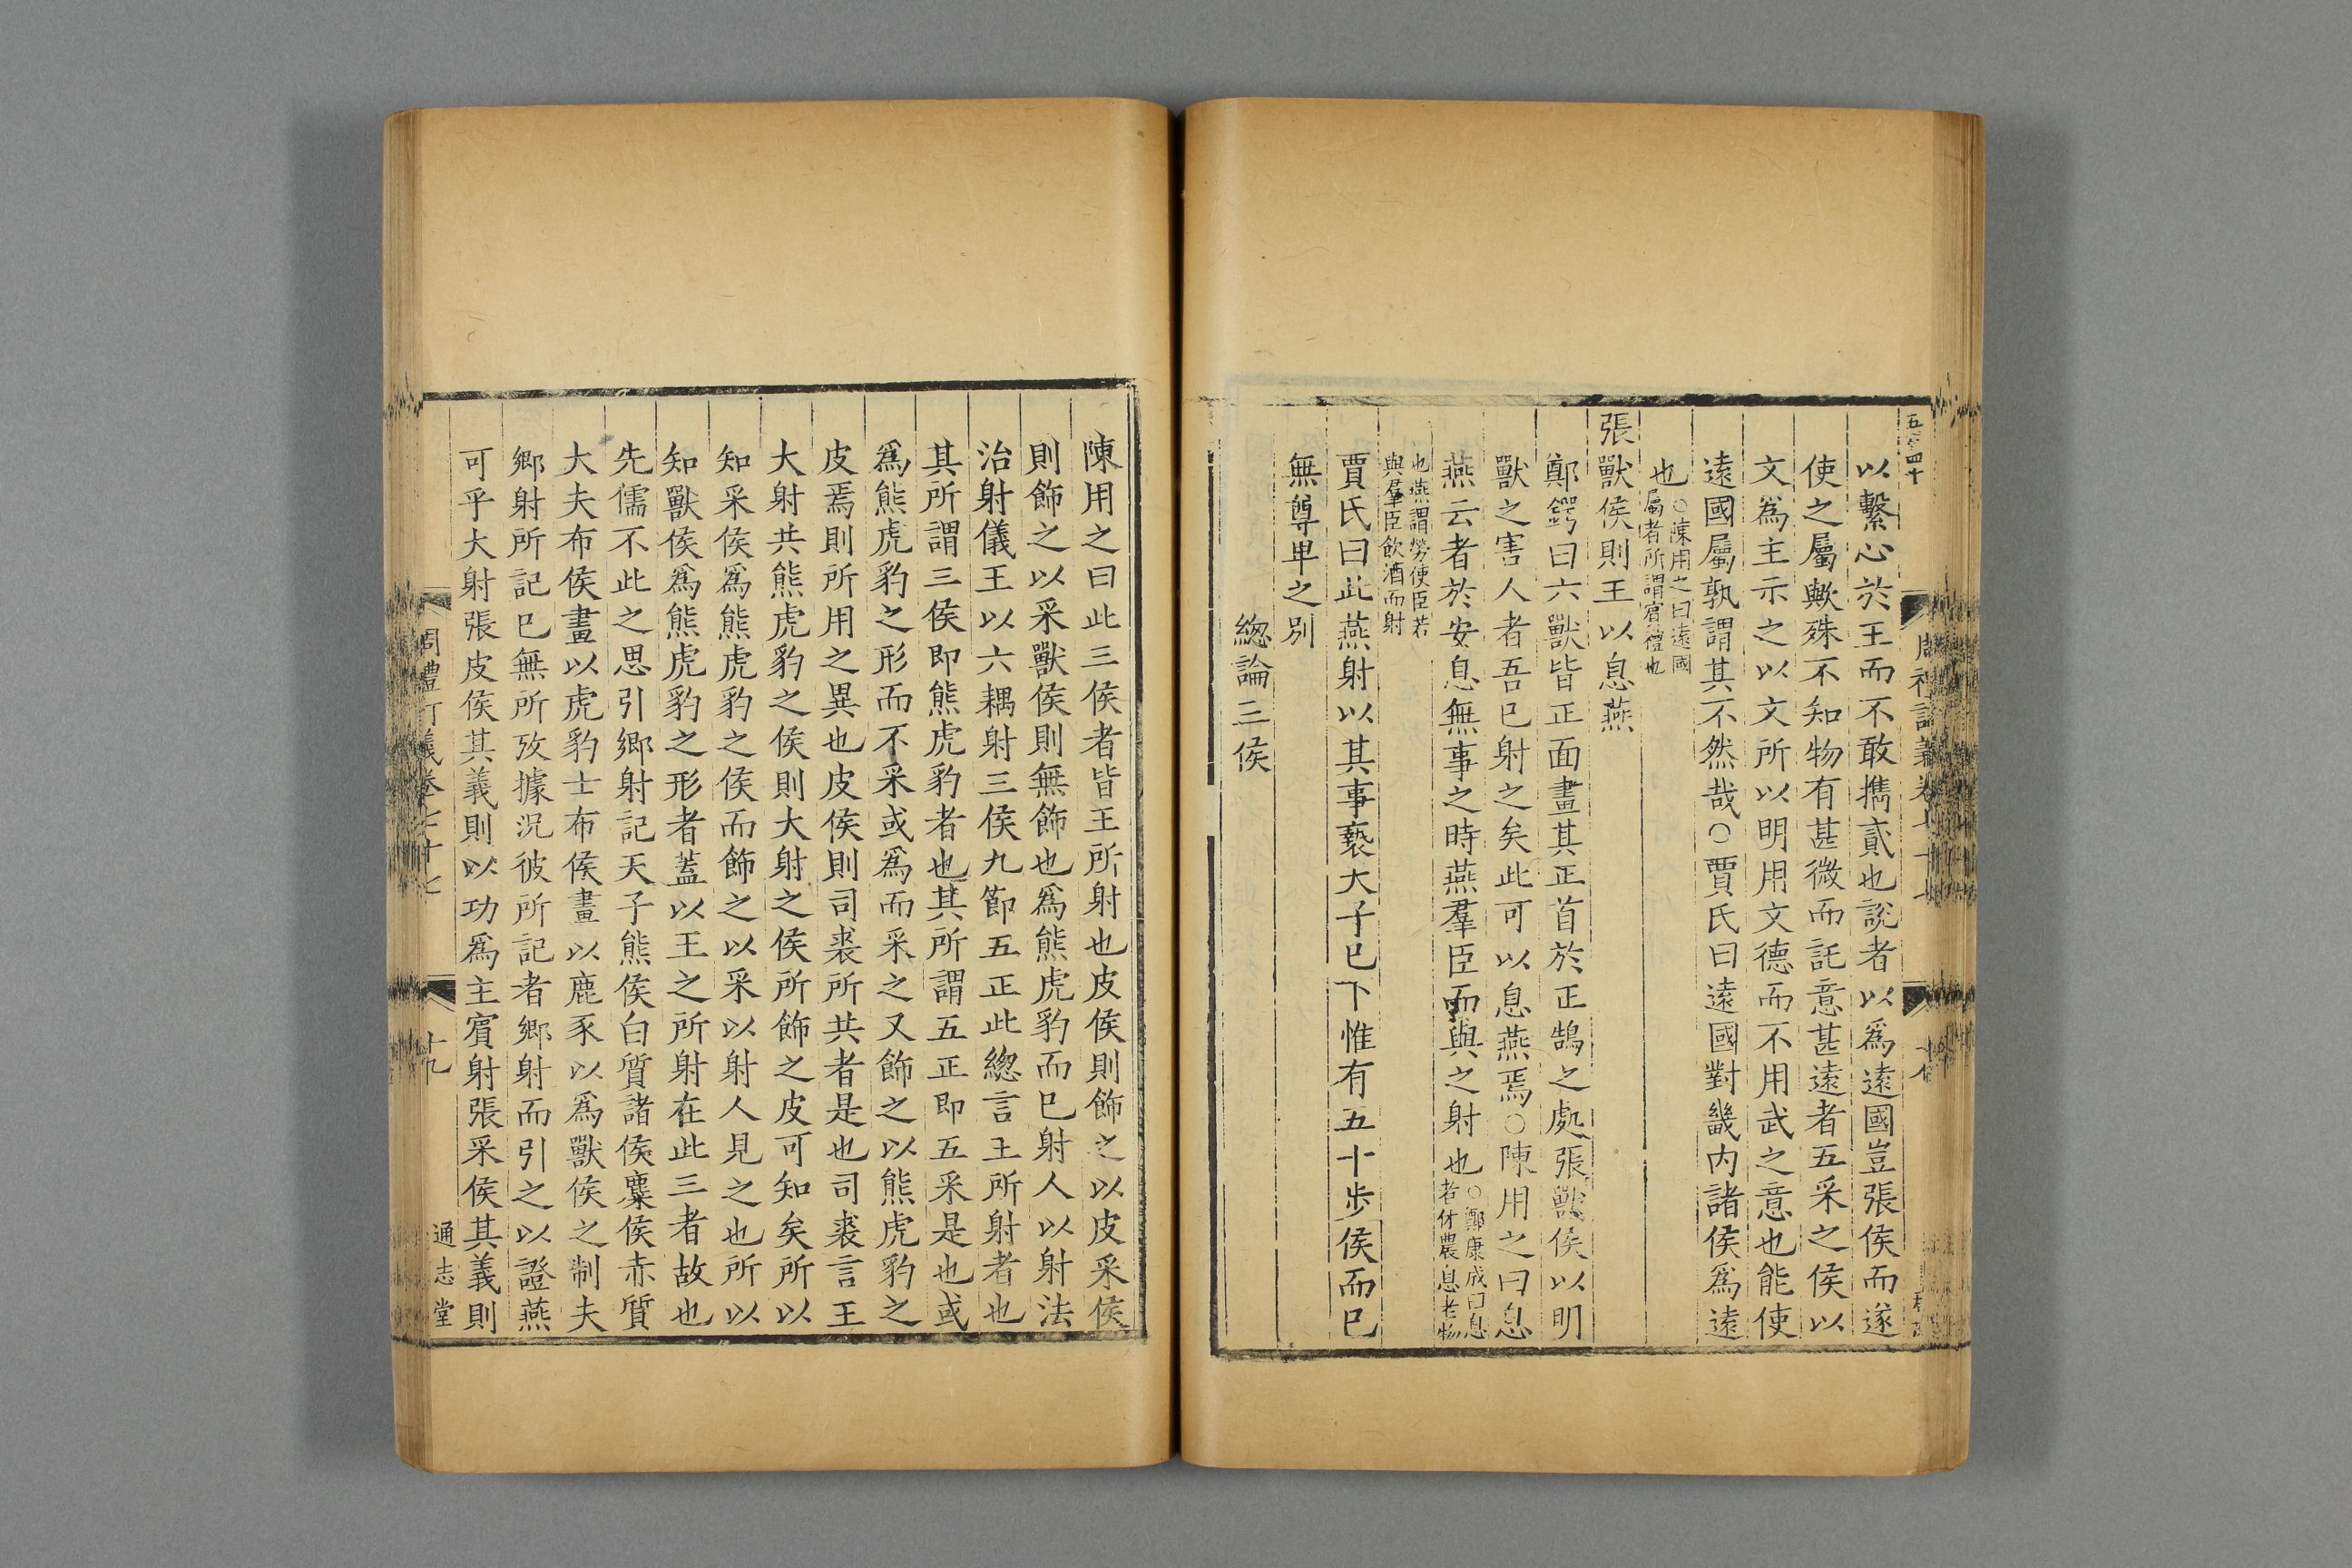 以繫心於王而不敢攜貳也說者以爲遠國豈張侯而遂
使之屬歟殊不知物有甚微而託意甚遠者五采之侯以
文爲主示之以文所以明用文德而不用武之意也能使
遠國屬孰謂其不然哉○賈氏曰遠國對畿內諸侯爲遠
也○陳用之曰遠國
屬者所謂賓禮也
張獸侯則王以息燕
鄭鍔曰六獸皆正面畫其正首於正鵠之處張獸侯以明
獸之害人者吾已射之矣此可以息燕焉○陳用之曰息
燕云者於安息無事之時燕羣臣而與之射也○鄭康成曰息
者休農息老物
也燕謂勞使臣若
與羣臣飲酒而射
賈氏曰此燕射以其事褻天子已下惟有五十步侯而已
無尊卑之別
總論三侯
陳用之曰此三侯者皆王所射也皮侯則飾之以皮采侯
則飾之以采獸侯則無飾也爲熊虎豹而已射人以射法
治射儀王以六耦射三侯九節五正此總言王所射者也
其所謂三侯即熊虎豹者也其所謂五正即五采是也或
爲熊虎豹之形而不采或爲而采之又飾之以熊虎豹之
皮焉則所用之異也皮侯則司裘所共者是也司裘言王
大射共熊虎豹之侯則大射之侯所飾之皮可知矣所以
知采侯爲熊虎豹之侯而飾之以采以射人見之也所以
知獸侯爲熊虎豹之形者蓋以王之所射在此三者故也
先儒不此之思引鄉射記天子熊侯白質諸侯麋侯赤質
大夫布侯畫以虎豹士布侯畫以鹿豕以爲獸侯之制夫
鄉射所記已無所攷據況彼所記者鄉射而引之以證燕
可乎大射張皮侯其義則以功爲主賓射張采侯其義則
周禮訂義卷七十七
十九
通志堂